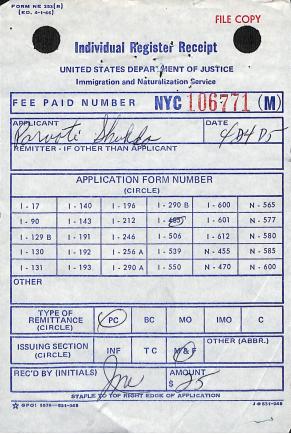 FORM NE 253(R)
(ED. 4-1-66)
FILE COPY
Individual Register Receipt
UNITED STATES DEPARTMENT OF JUSTICE
Immigration and Naturalization Service
FEE PAID NUMBER NYC 106771 (M)
APPLICANT DATE
REMITTER - IF OTHER THAN APPLICANT
APPLICATION FORM NUMBER
(CIRCLE)
I - 17 I - 140 I - 196 I - 290 B I - 600 N - 565
I - 90 I - 143 I - 212 I - 485 I - 601 N - 577
I - 129 B I - 191 I - 246 I - 506 I - 612 N - 580
I - 130 I - 192 I - 256 A I - 539 N - 455 N - 585
I - 131 I - 193 I - 290 A I - 550 N - 470 N - 600
OTHER
TYPE OF REMITTANCE (CIRCLE) PC BC MO IMO C
ISSUING SECTION (CIRCLE) INF T C M & F OTHER (ABBR.)
REC'D BY (INITIALS) AMOUNT $ 25
STAPLE TO TOP RIGHT EDGE OF APPLICATION